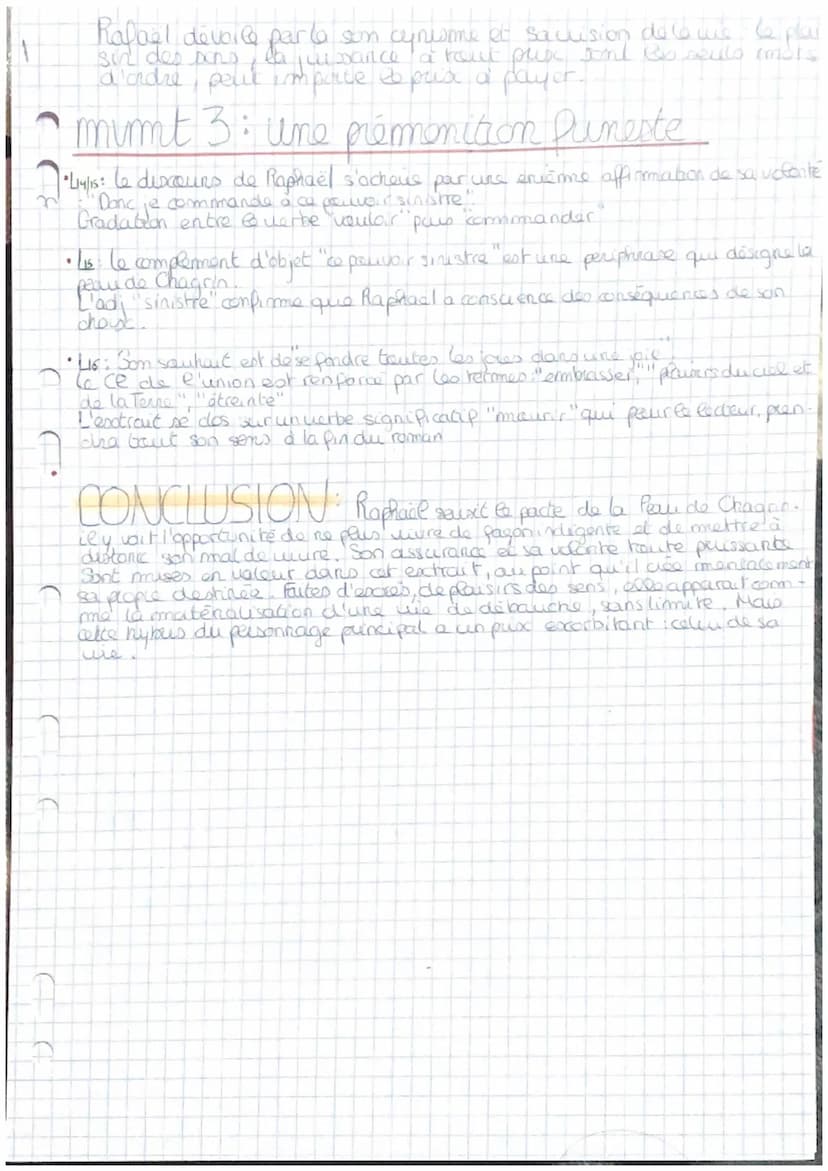 Rafaël dévoile par la son cynisme et sa vision de la vie. Le plai
sir des sens, la jouissance à tout prix sont les seuls mots
d'ordre, peut importe le prix à payer.
mvmt 3: une prémonition funeste
• L14/15: le discours de Raphaël s'achève par une énième affirmation de sa volonté
: "Donc je commande à ce pouvoir sinistre".
Gradation entre le verbe "vouloir" puis "commander"
• L15: le complément d'objet "ce pouvoir sinistre" est une périphrase qui désigne la
peau de Chagrin.
L'adj "sinistre" confirme que Raphael a conscience des conséquences de son
choix.
• L16: Son souhait est de "se fondre toutes les joies dans une joie".
Le CL de l'union est renforcé par les termes: "embrasser", "plaisirs du ciel et
de la Terre", "étreinte"
L'extrait se clos sur un verbe significatif "mourir" qui pour le lecteur, pren-
dra tout son sens à la fin du roman
CONCLUSION: Raphaël saisit le pacte de la Peau de Chagrin.
Il y voit l'opportunité de ne plus vivre de façon indigente et de mettre à
distance son mal de vivre. Son assurance et sa volonté toute puissante
Sont mises en valeur dans cet extrait, au point qu'il crée mentalement
sa propre destinée. Faites d'excès, de plaisirs des sens, elle apparait com-
me la matérialisation d'une vie de débauche, sans limite. Mais
cette hybris du personnage principal a un prix exorbitant : celui de sa
vie.